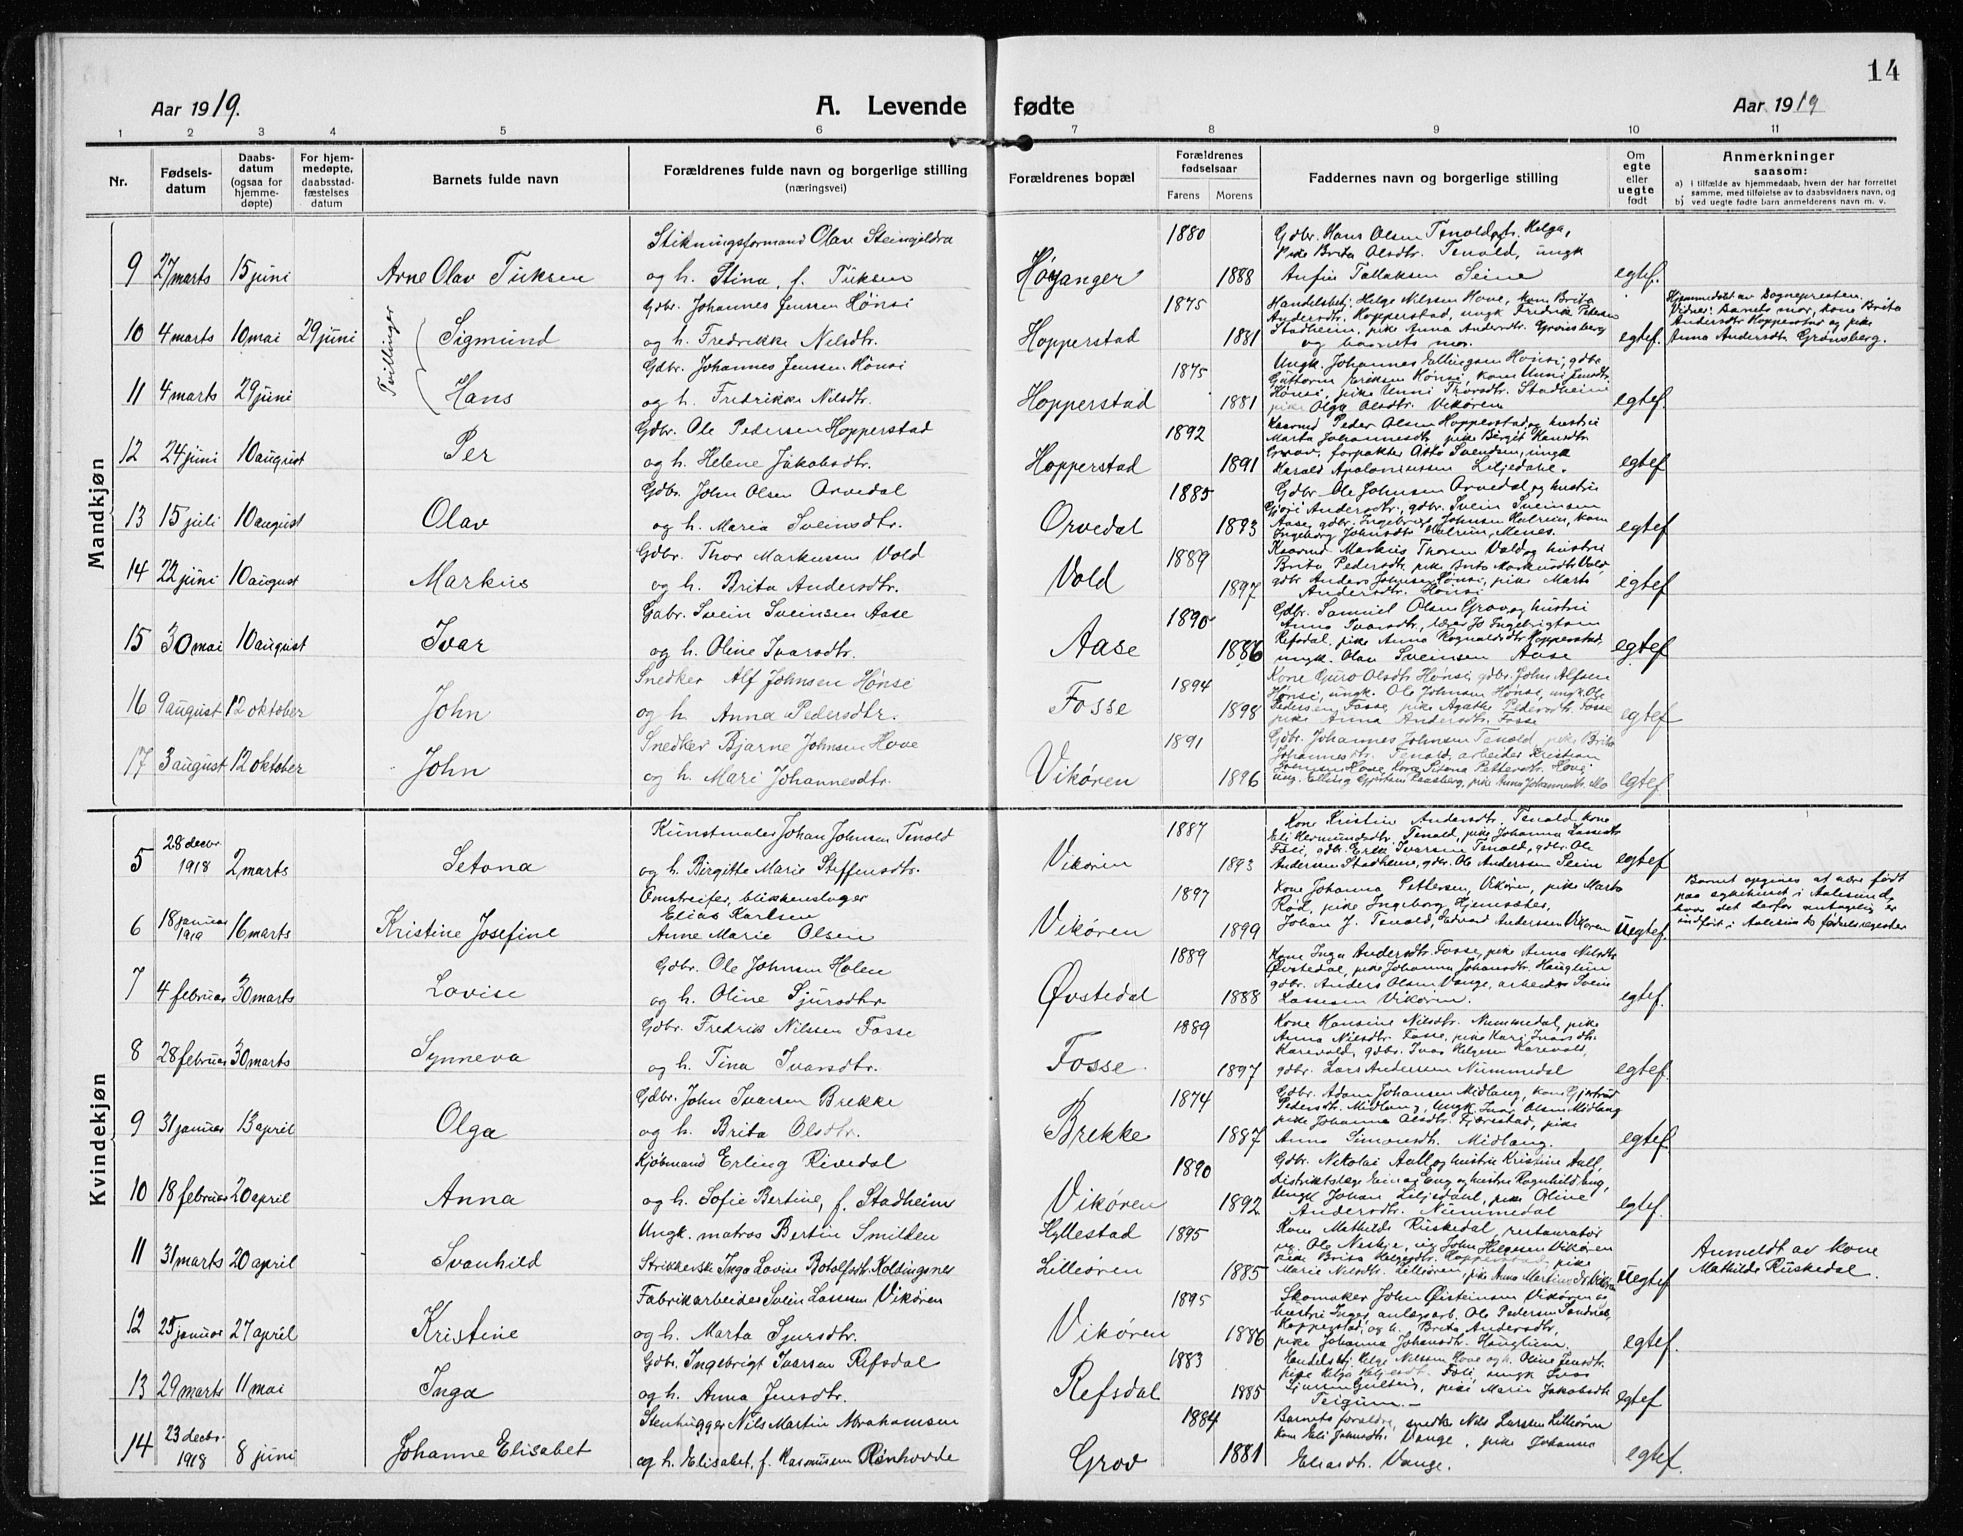 14
Aar 1919.
A. Levende fødte
Aar 1919
1 2 3 4 5 6 7 8 9 10 11
Nr.
Fødselsdatum
Daabsdatum (ogsaa for hjemmedøpte)
For hjemmedøpte, daabsstadfæstelses datum
Barnets fulde navn
Forældrenes fulde navn og borgerlige stilling
(næringsvei)
Forældrenes bopæl
Forældrenes fødselsaar
Farens Morens
Faddernes navn og borgerlige stilling
Om egte eller uegte født
Anmerkninger
saasom:
a) i tilfælde av hjemmedaab, hvem der har forrettet samme, med tilføielse av to daabsvidners navn, og
b) ved uegte fødte barn anmelderens navn m. v.
Mandkjøn
Stikningsformand Olav Steingjeldra 1880 Gdbr. Hans Olsen Tenold, h. Helga,
Pike Brita Olsdtr. Tenold, ungk
9 27 marts 15 juni Arne Olav Tuksen og h. Stina, f. Tuksen Høyanger 1888 Anfin Tollaksen Seine egtef.
Gdbr. Johannes Jenssen Hønsi 1875 Handelsbetj. Helge Nilssen Hove, kone Brita Hjemmedøpt av Sognepresten.
Andersdtr. Hopperstad, ungk Fredrik Petersen Vidner: Barnets mor, kone Brita
10 4 marts 10 mai 29 juni Tvillinger Sigmund og h. Fredrikke Nilsdtr. Hopperstad 1881 Stadheim, pike Anna Andersdtr. Grønsberg egtef. Andersdtr Hopperstad og pike
og barnets mor. Anna Andersdtr. Grønsberg.
Gdbr. Johannes Jenssen Hønsi 1875 Ungk. Johannes Ellingsen Hønsi, gdbr.
Guttorm Eriksen Hønsi, kone Unni Jensdtr.
11 4 marts 29 juni Hans og h. Fredrikke Nilsdtr. Hopperstad 1881 Hønsi, pike Unni Thorsdtr. Stadheim egtef.
pike Olga Olsdtr. Vikøren
Gdbr. Ole Pedersen Hopperstad 1892 Kaarmd Peder Olsen Hopperstad og hustru
Marta Johannesdtr. pike Birgit Hansdtr.
12 24 juni 10 august Per og h. Helene Jakobsdtr. Hopperstad 1891 Grov, forpakter Otto Svendsen, ungk egtef
Harald Apolonussen Liljedahl.
Gdbr. John Olsen Orvedal 1885 Gdbr. Ole Johnsen Orvedal og hustru
Andersdtr., gdbr. Svein Sveinsen
13 15 juli 10 august Olav og h. Maria Sveinsdtr. Orvedal 1893 Aase, gdbr. Ingebrigt Johnsen kone egtef
Ingeborg Johnsdtr. Menes.
Gdbr. Thor Markussen Vold 1889 Kaarmd Markus Thorsen Vold og hustru
Brita Pedersdtr. pike Brita Markusdtr. Vold
14 22 juni 10 august Markus og h. Brita Andersdtr. Vold 1897 gdbr Anders Johnsen Hønsi, pike Marta egtef
Andersdtr. Hønsi
Gdbr. Svein Sveinsen Aase 1890 Gdbr. Samuel Olsen Grov og hustru
Anna Ivarsdtr., lærer Jo Ingebrigtsen
15 30 mai 10 august Ivar og h. Oline Ivarsdtr. Aase 1886 Refsdal, pike Anna Rognaldsdtr Hopperstad, egtef
ungk. Olav Sveinsen Aase
Snedker Alf Johnsen Hønsi 1894 Kone Guro Olsdtr Hønsi, gdbr. John Alfsen
Hønsi, ungk. Ole Johnsen Hønsi, ungk. Ole
16 9 august 12 oktober John og h. Anna Pedersdtr. Fosse 1898 Pedersen Fosse, pike Agathe Pedersdtr. Fosse egtef
pike Anna Andersdtr. Fosse
Snedker Bjarne Johnsen Hove 1891 Gdbr. Johannes Johnsen Tenold, pike Brita
Johannesdtr. Tenold, arbeider Kristian
17 3 august 12 oktober John og h. Mari Johannesdtr. Vikøren 1896 Hove, kone Pettersdtr. Hove, egtef
ung. Elling pike Anna Johannesdtr. Mo
Kvindekjøn
28 decbr Kunstmaler Johan Johnsen Tenold 1887 Kone Kristine Andersdtr. Tenold, kone
Eli Hermundsdtr. Tenold, pike Johanna Lassesdtr
5 1918 2 marts Setona og h. Birgitte Marie Steffensdtr. Vikøren 1893 Føli, gdbr. Erik Ivarsen Tenold, gdbr. Ole egtef
Andersen Stadheim, gdbr. Ole Anderssen Seim
Omstreifer, blikkenslager 1897 Kone Johanna Pettersen, Vikøren, pike Marta Barnet opgives at være født
Elias Karlsen Rød, pike Ingeborg paa sykehuset i Aalesund,
6 18 januar 1919 16 marts Kristine Josefine Anne Marie Olsen Vikøren 1899 Johan J. Tenold, Edvard Anderssen Vikøren uegtef. hvor det derfor antagelig er
indført i Aalesunds fødselsregister
Gdbr. Ole Johnsen Holen 1889 Kone Inga Andersdtr. Fosse, pike Anna Nilsdtr
Øvstedal, pike Johanna Johansdtr. Hauglum
7 4 februar 30 marts Lovise og h. Oline Sjursdtr Øvstedal 1888 gdbr. Anders Olsen Vange, arbeider Svein egtef.
Lassesen Vikøren.
Gdbr. Fredrik Nilssen Fosse 1889 Kone Hansine Nilsdtr. Nummedal, pike
Anna Nilsdtr. Fosse, pike Kari Ivarsdtr.
8 28 februar 30 marts Synneva og h. Tina Ivarsdtr. Fosse. 1897 Karevold, gdbr. Ivar Helgesen Karevold, egtef.
gdbr. Lars Andersen Nummedal
Gdbr. John Ivarsen Brekke 1874 Gdbr. Adam Johansen Midlang, kone Gjertrud
Pedersdtr. Midlang, Ungk. Ivar Olsen Midlang
9 31 januar 13 april Olga og h. Brita Olsdtr. Brekke 1887 pike Johanna Olsdtr. Fjærestad, pike egtef.
Anna Simonsdtr. Midlang.
Kjøbmand Erling Rivedal 1890 Gdbr. Nikolai Aall og hustru Kristine Aall,
Distriktslæge Einar Eng og hustru Ragnhild Eng,
10 18 februar 20 april Anna og h. Sofie Bertine, f. Stadheim Vikøren 1892 Ungk Johan Liljedahl, pike Oline egtef.
Andersdtr. Nummedal
Ungk. matros Bertin Smilden Hyllestad 1895 Kone Mathilde Ruskedal, restauratør
ug. Ole Neskje, ug John Helgesen Vikøren Anmeldt av kone
11 31 marts 20 april Svanhild Strikkerske Inga Lovise Botolfsdtr. Koldingsnes Lilleøren 1885 pike Brita Helgesdtr. Hopperstad, pike uegtef Mathilde Ruskedal.
Marie Nilsdtr. Lilleøren, pike Anna
Fabrikarbeider Svein Lassesen Vikøren 1895 Skomaker John Øisteinsen Vikøren og
hustru Inger, anlægsarb. Ole Pedersen
12 25 januar 27 april Kristine og h. Marta Sjursdtr. Vikøren 1886 Hopperstad, og h. Brita Andersdtr, egtef.
pike Johanna Johansdtr. Hauglum.
Gdbr. Ingebrigt Ivarsen Refsdal 1883 Handelsbetj. Helge Nilssen Hove og h. Oline Jensdtr.
pike Helga Føli, ungk Ivar
13 29 marts 11 mai Inga og h. Anna Jensdtr. Refsdal 1885 pike Marie Jakobsdtr egtef
Teigum.
23 decbr. Stenhugger Nils Martin Abrahamsen 1884 Barnets forældre, snedker Nils Larsen Lilleøren
kone Eli Johnsdtr. Vange, pike Johanna
14 1918 8 juni Johanne Elisabet og h. Elisabet, f. Rasmussen Rønhovde Grov 1881 Vange. egtef.